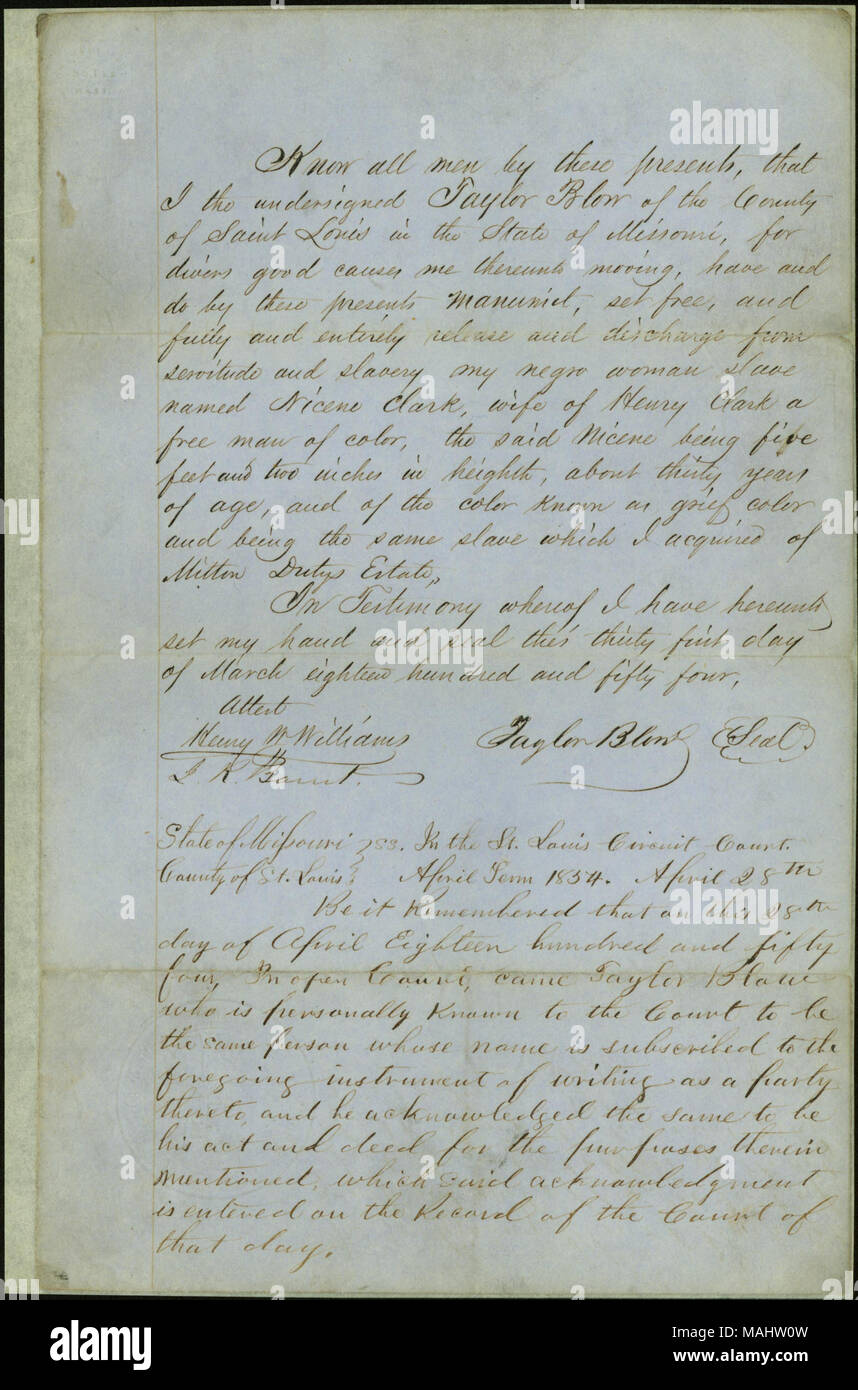 Know all men by these presents, that
I the undersigned Taylor Blow of the County
of Saint Louis in the State of Missouri, for
divers good causes me thereunto moving, have and
do by these presents manumit, set free, and
fully and entirely release and discharge from
servitude and slavery my negro woman slave
named Nicene Clark, wife of Henry Clark a
free man of color, the said Nicene being five
feet and two inches in heighth, about thirty years
of age, and of the color known as grief color
and being the same slave which I acquired of
Milton Dutys Estate,
In Testimony whereof I have hereunto
set my hand and seal this thirty first day
of March eighteen hundred and fifty four,
Attest
Henry W Williams Taylor Blow Seal
State of Missouri SS. In the St. Louis Circuit Court.
County of St. Louis April Term 1854. April 28th
Be it Remembered that on this 28th
day of April Eighteen hundred and fifty
four, In open Court, came Taylor Blow
who is personally known to the Court to be
the same person whose name is subscribed to the
foregoing instrument of writing as a party
thereto, and he acknowledged the same to be
his act and deed for the purposes therein
mentioned, which said acknowledgment
is entered on the Record of the Court of
that day.
alamy
Image ID: MAHW0W
www.alamy.com